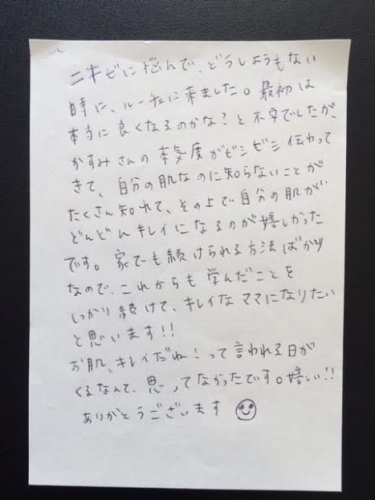 ニキビに悩んで、どうしようもない
時に、ルーチェに来ました。最初は
本当に良くなるのかな？と不安でしたが、
かすみさんの本気度がビシビシ伝わって
きて、自分の肌なのに知らないことが
たくさん知れて、その上で自分の肌が
どんどんキレイになるのが嬉しかった
です。家でも続けられる方法ばかり
なので、これからも学んだことを
しっかり続けて、キレイなママになりたい
と思います!!
お肌、キレイだね！って言われる日が
くるなんて、思ってなかったです。嬉しい!!
ありがとうございます